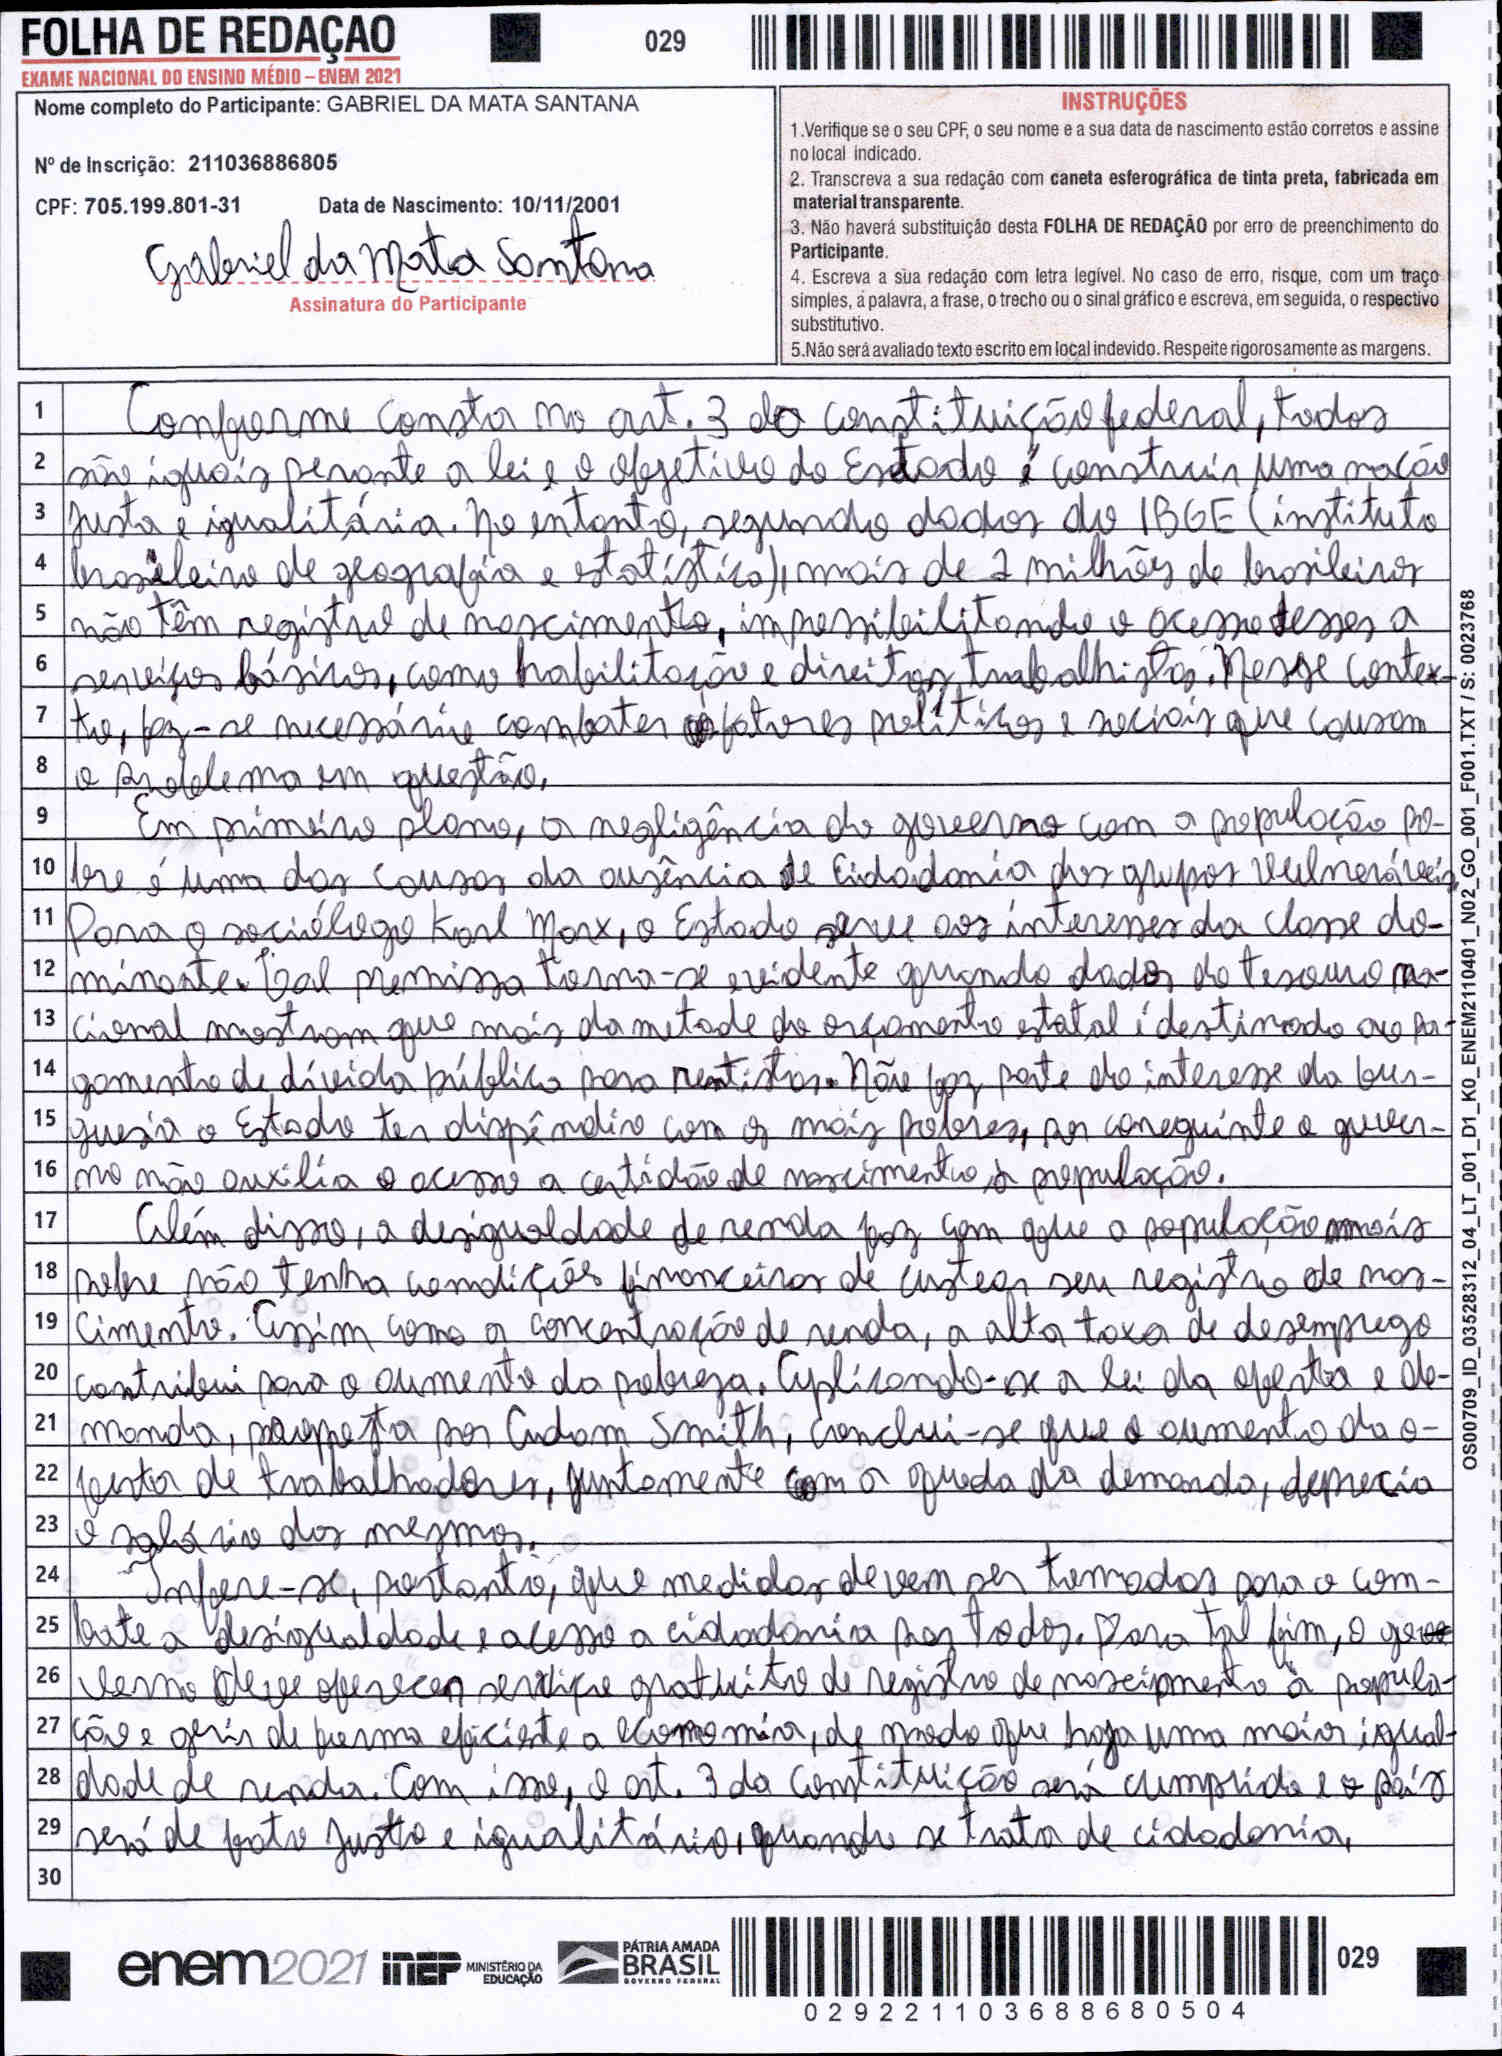 FOLHA DE REDAÇÃO
029
EXAME NACIONAL DO ENSINO MÉDIO – ENEM 2021
Nome completo do Participante: GABRIEL DA MATA SANTANA
Nº de Inscrição: 211036886805
CPF: 705.199.801-31 Data de Nascimento: 10/11/2001
Gabriel da Mata Santana
Assinatura do Participante
INSTRUÇÕES
1.Verifique se o seu CPF, o seu nome e a sua data de nascimento estão corretos e assine
no local indicado.
2. Transcreva a sua redação com caneta esferográfica de tinta preta, fabricada em
material transparente.
3. Não haverá substituição desta FOLHA DE REDAÇÃO por erro de preenchimento do
Participante.
4. Escreva a sua redação com letra legível. No caso de erro, risque, com um traço
simples, a palavra, a frase, o trecho ou o sinal gráfico e escreva, em seguida, o respectivo
substitutivo.
5.Não será avaliado texto escrito em local indevido. Respeite rigorosamente as margens.
1 Conforme consta no art. 3 da constituição federal, todos
2 são iguais perante a lei e o objetivo do Estado é construir uma nação
3 justa e igualitária. No entanto, segundo dados do IBGE (instituto
4 brasileiro de geografia e estatística), mais de 2 milhões de brasileiros
5 não têm registro de nascimento, impossibilitando o acesso desses a
6 serviços básicos, como habilitação e direitos trabalhistas. Nesse contex-
7 to, faz-se necessário combater fatores políticos e sociais que causam
8 o problema em questão.
9 Em primeiro plano, a negligência do governo com a população po-
10 bre é uma das causas da ausência de cidadania dos grupos vulneráveis.
11 Para o sociólogo Karl Marx, o Estado serve aos interesses da classe do-
12 minante. Tal premissa torna-se evidente quando dados do tesouro na-
13 cional mostram que mais da metade do orçamento estatal é destinado ao pa-
14 gamento de dívida pública para rentistas. Não faz parte do interesse da bur-
15 guesia o Estado ter dispêndio com os mais pobres, por coneguinte o gover-
16 no não auxilia o acesso a certidão de nascimento à população.
17 Além disso, a desigualdade de renda faz com que a população mais
18 pobre não tenha condições financeiras de custear seu registro de nas-
19 cimento. Assim como a concentração de renda, a alta taxa de desemprego
20 contribui para o aumento da pobreza. Aplicando-se a lei da oferta e de-
21 manda, proposta por Adam Smith, conclui-se que o aumento da o-
22 ferta de trabalhadores, juntamente com a queda da demanda, deprecia
23 o salário dos mesmos.
24 Infere-se, portanto, que medidas devem ser tomadas para o com-
25 bate a desigualdade e acesso a cidadania por todos. Para tal fim, o go
26 verno deve oferecer serviço gratuito de registro de nascimento à popula-
27 ção e gerir de forma eficiente a economia, de modo que haja uma maior igual-
28 dade de renda. Com isso, o art. 3 da Constituição será cumprido e o país
29 será de fato justo e igualitário, quando se trata de cidadania.
30
OS00709_ID_03528312_04_LT_001_D1_K0_ENEM2110401_N02_GO_001_F001.TXT / S: 0023768
enem2021
inep
MINISTÉRIO DA
EDUCAÇÃO
PÁTRIA AMADA
BRASIL
GOVERNO FEDERAL
029
029221103688680504